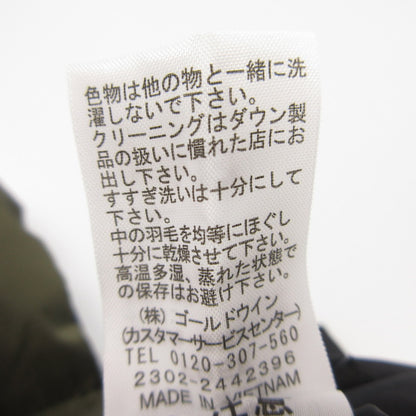 色物は他の物と一緒に洗
濯しないで下さい。
クリーニングはダウン製
品の扱いに慣れた店にお
出し下さい。
すすぎ洗いは十分にして
下さい。
中の羽毛を均等にほぐし
十分に乾燥させて下さい。
高温多湿、蒸れた状態で
の保存はお避け下さい。
(株) ゴールドウイン
(カスタマーサービスセンター)
TEL 0120-307-560
2302-2442396
MADE IN VIETNAM